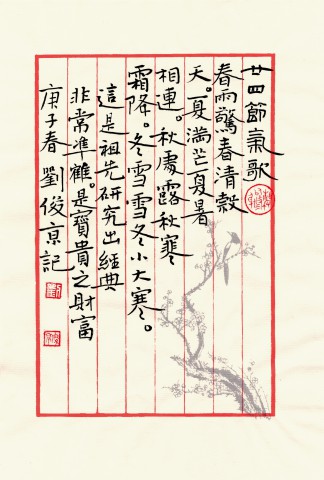 廿四節氣歌
春雨驚春清穀
天。夏滿芒夏暑
相連。秋處露秋寒
霜降。冬雪雪冬小大寒。
這是祖先研究出經典
非常準確。是寶貴之財富
庚子春 劉俊京記